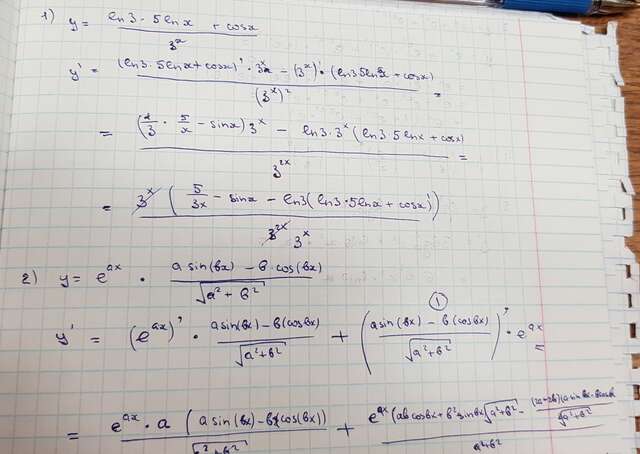 1) y = (ln3 · 5lnx + cosx) / 3^x
y' = ((ln3 · 5lnx + cosx)' · 3^x - (3^x)' · (ln3 5lnx + cosx)) / (3^x)^2 =
= ((1/3 · 5/x - sinx) 3^x - ln3 · 3^x (ln3 5lnx + cosx)) / 3^2x =
= 3^x (5/3x - sinx - ln3 (ln3 · 5lnx + cosx)) / 3^2x 3^x
2) y = e^ax · (a sin(bx) - b · cos(bx)) / √(a^2 + b^2)
①
y' = (e^ax)' · (a sin(bx) - b(cosbx)) / √(a^2+b^2) + ((a sin(bx) - b(cosbx)) / √(a^2+b^2))' · e^ax =
= e^ax · a (a sin(bx) - b(cos(bx)) / √(a^2+b^2) + e^ax (ab cosbx + b^2 sinbx √(a^2+b^2) - (a sinbx - b cosbx) / √(a^2+b^2)) / a^2+b^2